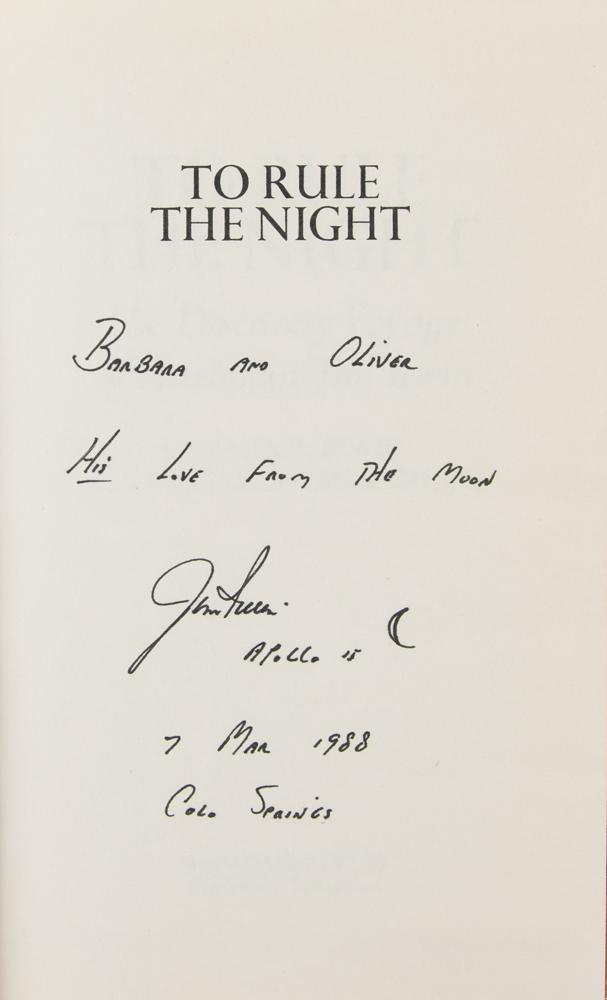 TO RULE
THE NIGHT
BARBARA AND OLIVER
His LOVE FROM THE MOON
Jim Irwin
APOLLO 15
7 MAR 1988
COLO SPRINGS